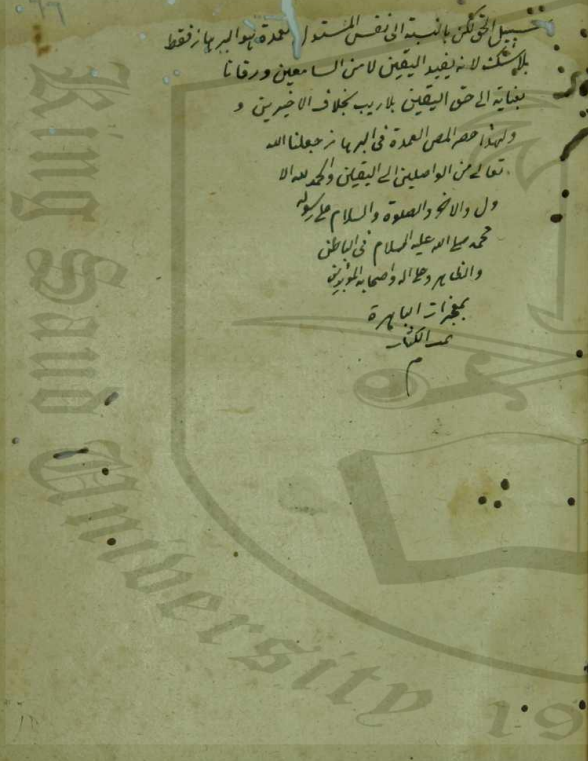 سبيل الحق لكن بالنسبة الى نفس المستدل العمدة هو البرهان فقط
بلا شك لانه يفيد اليقين لا من السامعين ورقانا
بعنايته الى حق اليقين بلا ريب بخلاف الاخيرين و
ولهذا حصر المص العمدة فى البرهان جعلنا الله
تعالى من الواصلين الى اليقين والحمد لله الا
ول والاخر والصلوة والسلام على رسوله
محمد صلى الله عليه السلام فى الباطن
والظاهر وعلى اله واصحابه المؤيدين
بمعجزات الباهرة
م
King Saud University 19